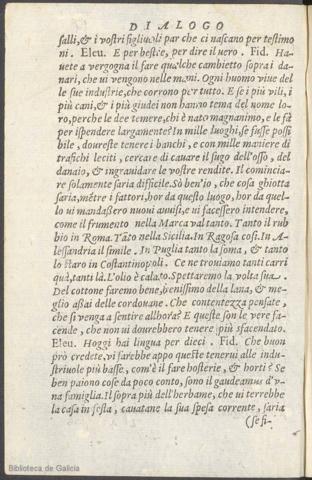 DIALOGO
salli, & i vostri figliuoli par che ci nascano per testimo
ni. Eleu. E per bestie, per dire il uero. Fid. Ha
uete a vergogna il fare qualche cambietto sopra i da
nari, che ui vengono nelle mani. Ogni huomo viue del
le sue industrie, che corrono per tutto. E se i più vili, i
più cani, & i più giudei non hanno tema del nome lo-
ro, perche le dee temere, chi è nato magnanimo, e le fà
per ispendere largamente? In mille luoghi, se fusse possi
bile, doureste tenere i banchi, e con mille maniere di
trafichi leciti, cercare di cauare il sugo dell'osso, del
danaio, & ingrauidare le vostre rendite. Il comincia-
re solamente saria difficile. Sò ben'io, che cosa ghiotta
saria, mētre i fattori, hor da questo luogo, hor da quel-
lo ui mandassero nuoui auuisi, e ui facessero intendere,
come il frumento nella Marca val tanto. Tanto il rub
bio in Roma. Tāto nella Sicilia. In Ragosa così. In A-
lessandria il simile. In Puglia tanto la soma, & tanto
lo staro in Costantinopoli. Ce ne trouiamo tanti carri
quà, tanti là. L'olio è calato. Spettaremo la volta sua.
Del cottone faremo bene, benissimo della lana, & me-
glio assai delle cordouane. Che contentezza pensate,
che si venga a sentire allhora? E queste son le vere fa-
cende, che non ui dourebbero tenere più sfacendato.
Eleu. Hoggi hai lingua per dieci. Fid. Che buon
prò credete, vi farebbe appo queste tenerui alle indu-
striuole più basse, com'è il fare hosterie, & horti? Se
ben paiono cose da poco conto, sono il gaudeamus d'v-
na famiglia. Il sopra più dell'herbame, che ui terrebbe
la casa in sesta, cauatane la sua spesa corrente, saria
(se si-
Biblioteca de Galicia